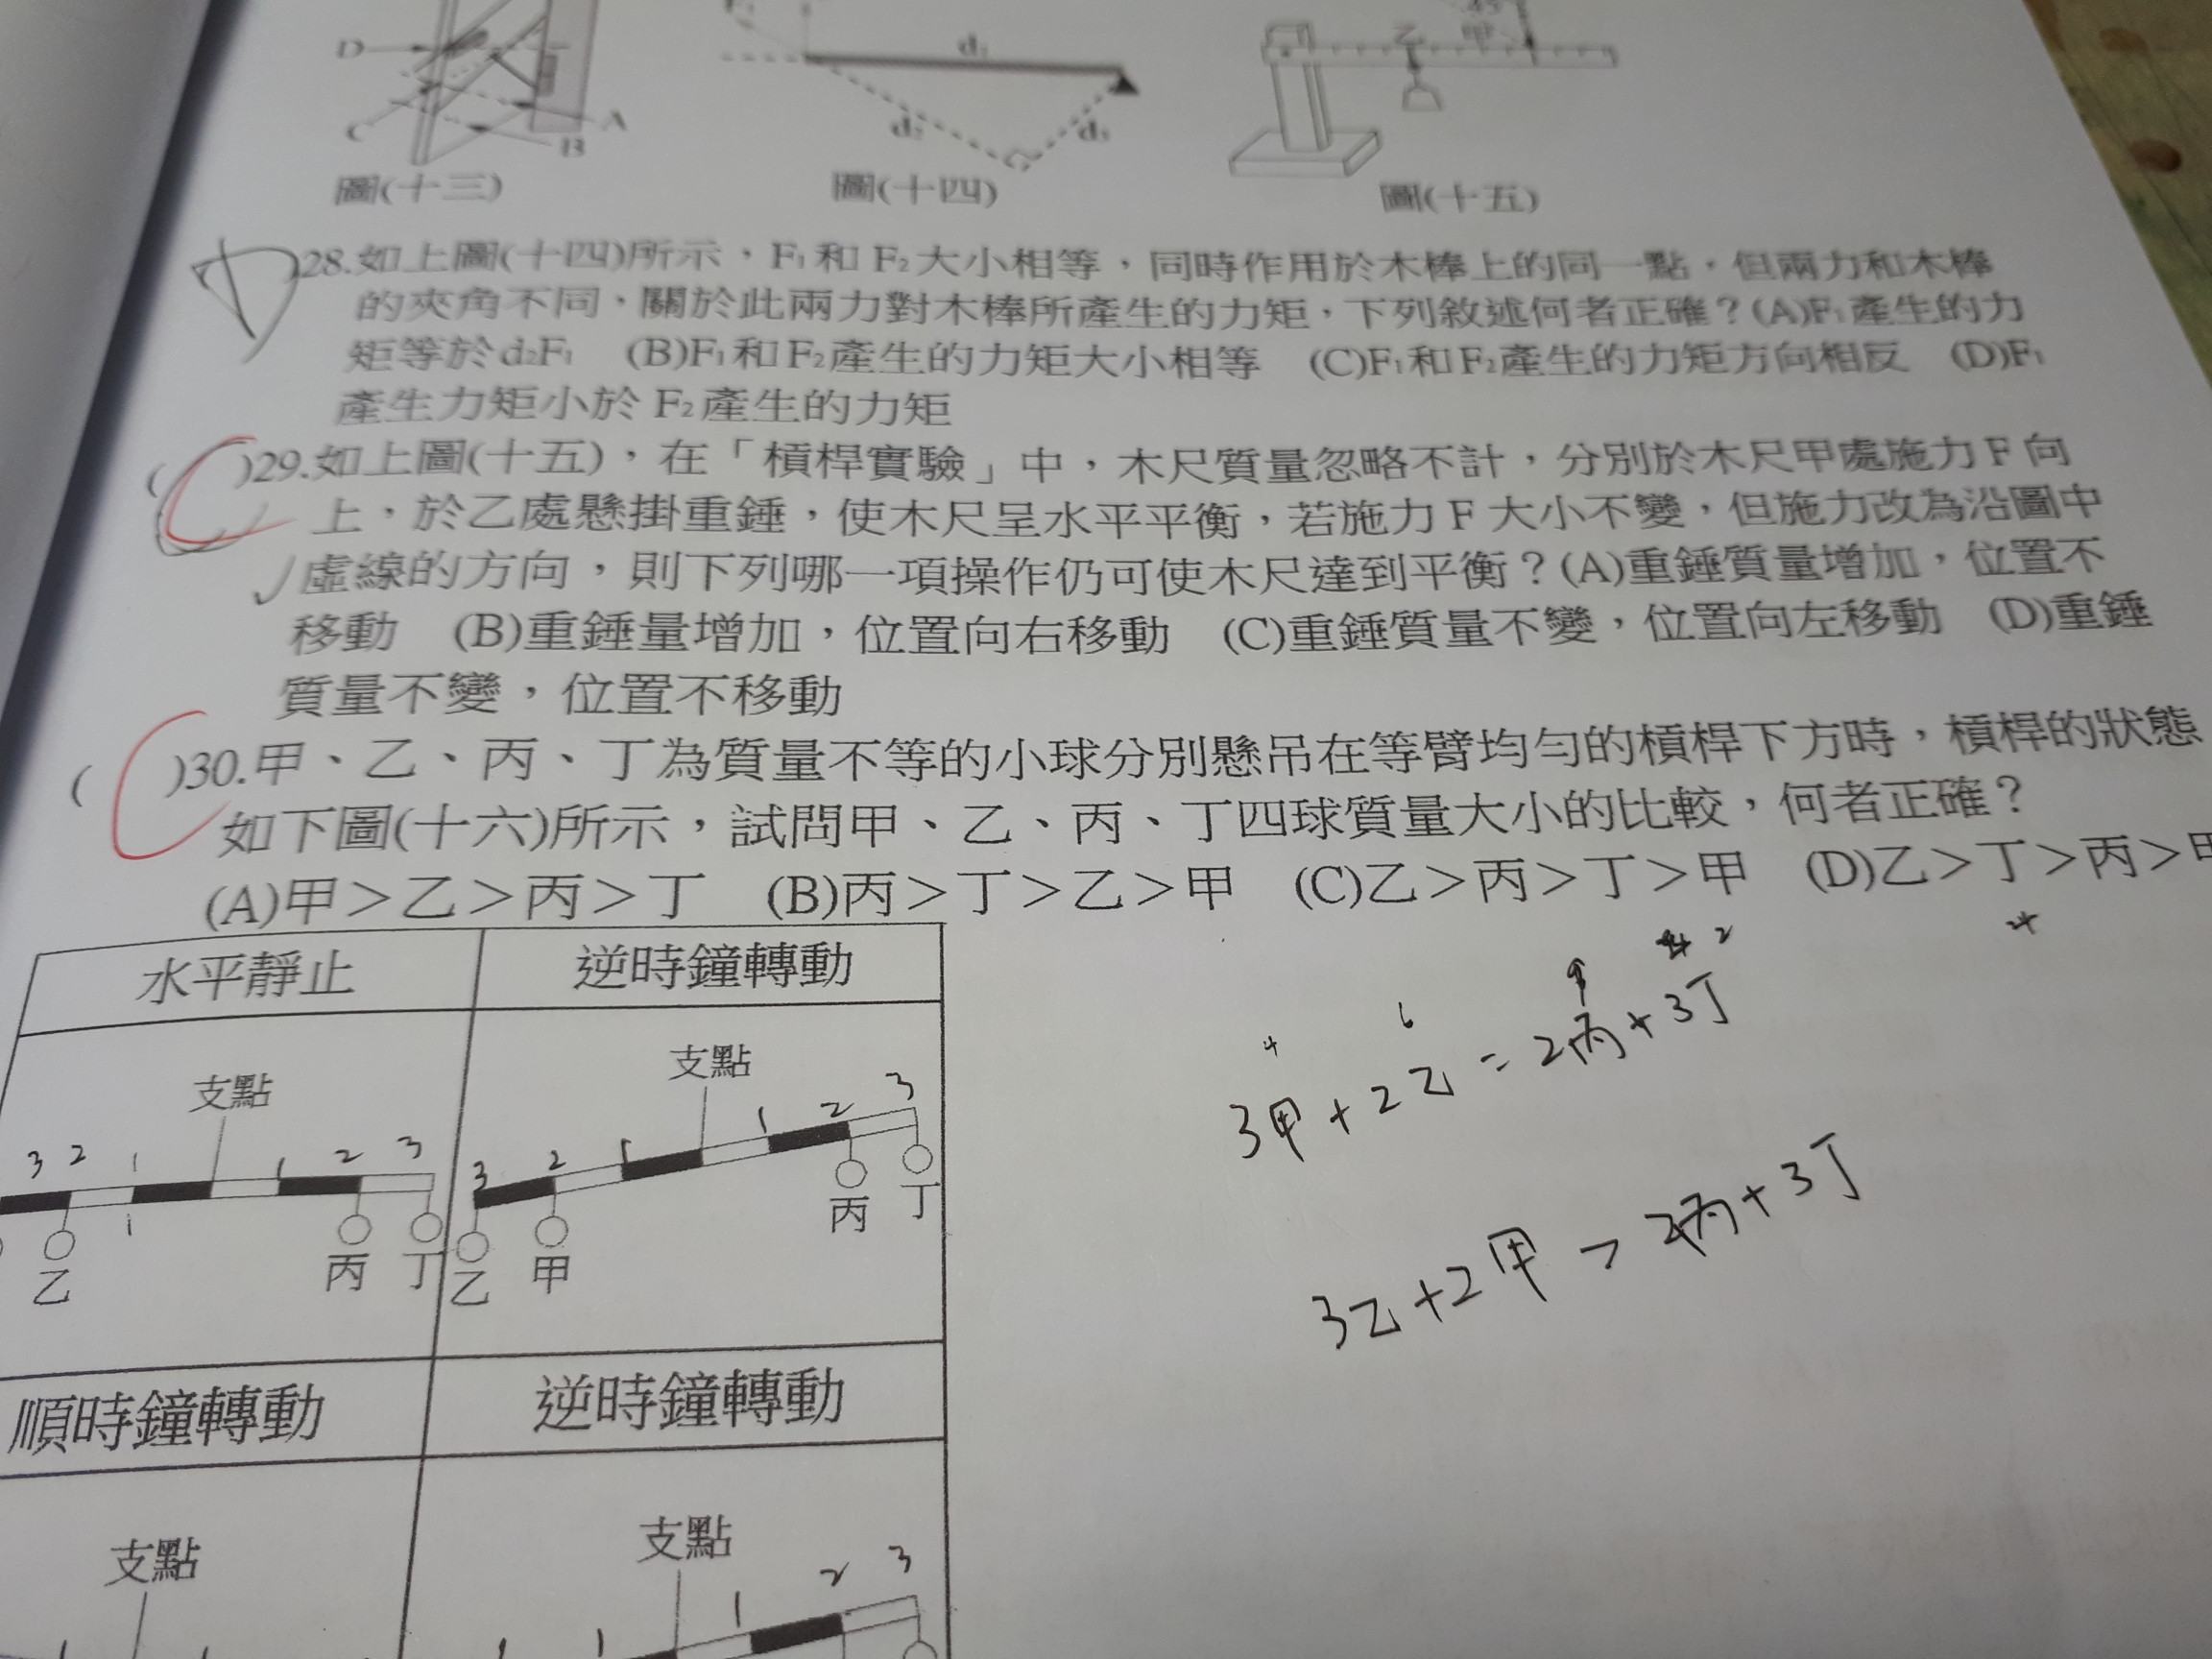 D
C
A
B
圖(十三)
d₁
d₂
d₃
圖(十四)
乙
甲
45
圖(十五)
D )28.如上圖(十四)所示，F₁和 F₂大小相等，同時作用於木棒上的同一點，但兩力和木棒
的夾角不同，關於此兩力對木棒所產生的力矩，下列敘述何者正確？(A)F₁產生的力
矩等於 d₂F₁ (B)F₁和 F₂產生的力矩大小相等 (C)F₁和 F₂產生的力矩方向相反 (D)F₁
產生力矩小於 F₂產生的力矩
( C )29.如上圖(十五)，在「槓桿實驗」中，木尺質量忽略不計，分別於木尺甲處施力 F 向
上，於乙處懸掛重錘，使木尺呈水平平衡，若施力 F 大小不變，但施力改為沿圖中
虛線的方向，則下列哪一項操作仍可使木尺達到平衡？(A)重錘質量增加，位置不
移動 (B)重錘量增加，位置向右移動 (C)重錘質量不變，位置向左移動 (D)重錘
質量不變，位置不移動
( C )30.甲、乙、丙、丁為質量不等的小球分別懸吊在等臂均勻的槓桿下方時，槓桿的狀態
如下圖(十六)所示，試問甲、乙、丙、丁四球質量大小的比較，何者正確？
(A)甲＞乙＞丙＞丁 (B)丙＞丁＞乙＞甲 (C)乙＞丙＞丁＞甲 (D)乙＞丁＞丙＞甲
水平靜止 逆時鐘轉動
支點 支點
3 2 1 1 2 3
1
3 2 1 1 2 3
乙 丙 丁
乙 甲 丙 丁
3甲+2乙=2丙+3丁
3乙+2甲>2丙+3丁
順時鐘轉動 逆時鐘轉動
支點 支點
1 2 3